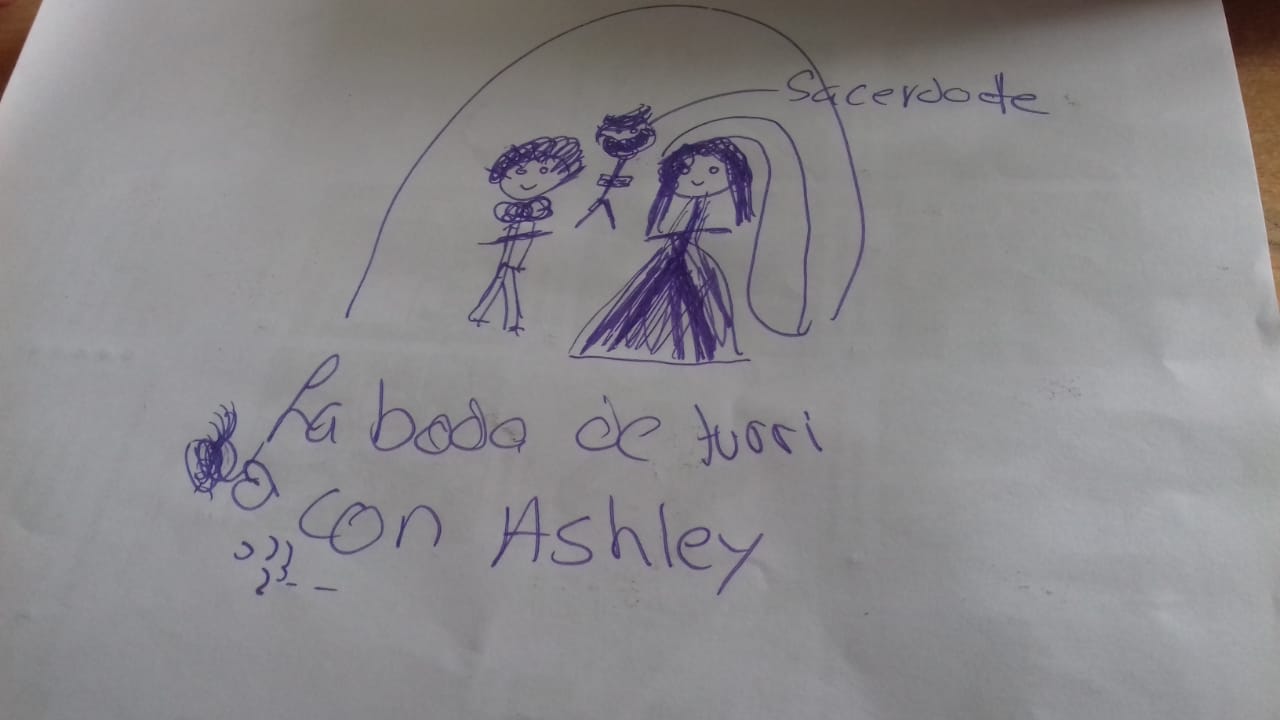 Sacerdote
La boda de turri
con Ashley